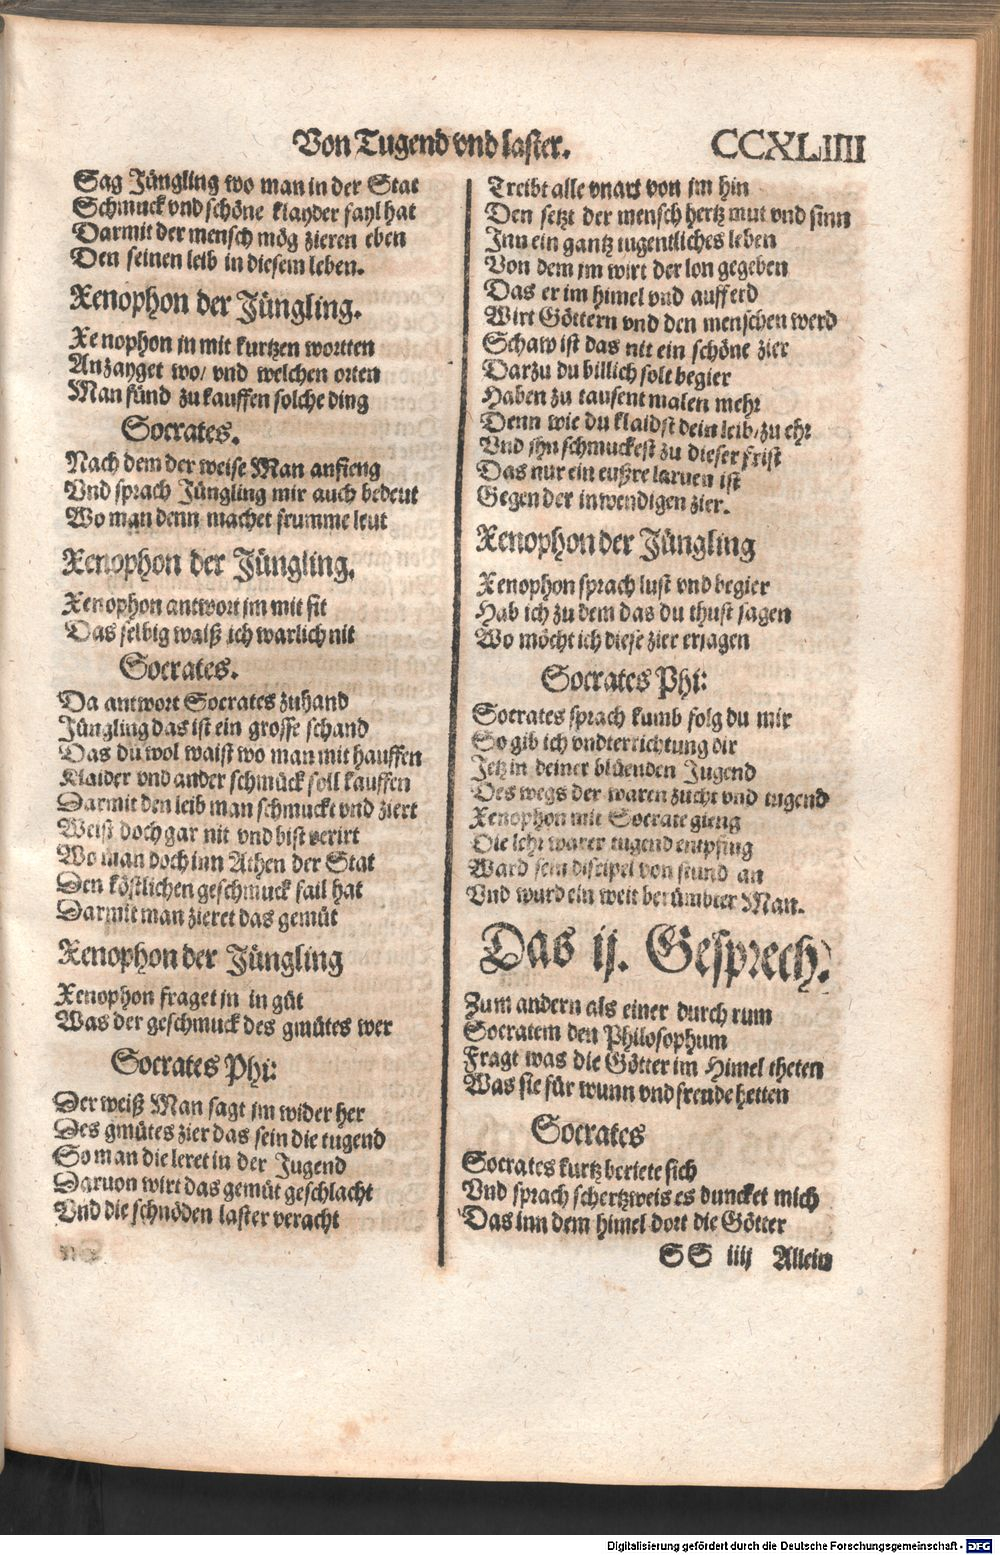 Von Tugend vnd laster. CCXLIIII
Sag Jüngling wo man in der Stat
Schmuck vnd schöne klayder fayl hat
Darmit der mensch mög zieren eben
Den seinen leib in diesem leben.
Xenophon der Jüngling.
Xenophon jn mit kurtzen wortten
Anzayget wo/ vnd welchen orten
Man fünd zu kauffen solche ding
Socrates.
Nach dem der weise Man anfieng
Vnd sprach Jüngling mir auch bedeut
Wo man denn machet frumme leut
Xenophon der Jüngling.
Xenophon antwort jm mit sit
Das selbig waiß ich warlich nit
Socrates.
Da antwort Socrates zuhand
Jüngling das ist ein grosse schand
Das du wol waist wo man mit hauffen
Klaider vnd ander schmück soll kauffen
Darmit den leib man schmuckt vnd ziert
Weist doch gar nit vnd bist verirt
Wo man doch inn Athen der Stat
Den köstlichen geschmuck fail hat
Darmit man zieret das gemüt
Xenophon der Jüngling
Xenophon fraget jn in güt
Was der geschmuck des gmütes wer
Socrates Phi:
Der weiß Man sagt jm wider her
Des gmütes zier das sein die tugend
So man die leret in der Jugend
Daruon wirt das gemüt geschlacht
Vnd die schnöden laster veracht
Treibt alle vnart von jm hin
Den setzt der mensch hertz mut vnd sinn
Inn ein gantz tugentliches leben
Von dem jm wirt der lon gegeben
Das er im himel vnd auff erd
Wirt Göttern vnd den menschen werd
Schaw ist das nit ein schöne zier
Darzu du billich solt begier
Haben zu tausent malen mehr
Denn wie du klaidst dein leib/ zu ehr
Vnd jhn schmuckest zu dieser frist
Das nur ein eußre laruen ist
Gegen der inwendigen zier.
Xenophon der Jüngling
Xenophon sprach lust vnd begier
Hab ich zu dem das du thust sagen
Wo möcht ich diese zier erjagen
Socrates Phi:
Socrates sprach kumb folg du mir
So gib ich vndterrichtung dir
Jetz in deiner blüenden Jugend
Des wegs der waren zucht vnd tugend
Xenophon mit Socrate gieng
Die lehr warer tugend entpfing
Ward sein discipel von stund an
Vnd wurd ein weit berümbter Man.
Das ij. Gesprech.
Zum andern als einer durch rum
Socratem den Philosophum
Fragt was die Götter im Himel theten
Was sie für wunn vnd freude hetten
Socrates
Socrates kurtz beriete sich
Vnd sprach schertzweis es duncket mich
Das inn dem himel dort die Götter
SS iiij Allein
Digitalisierung gefördert durch die Deutsche Forschungsgemeinschaft - DFG